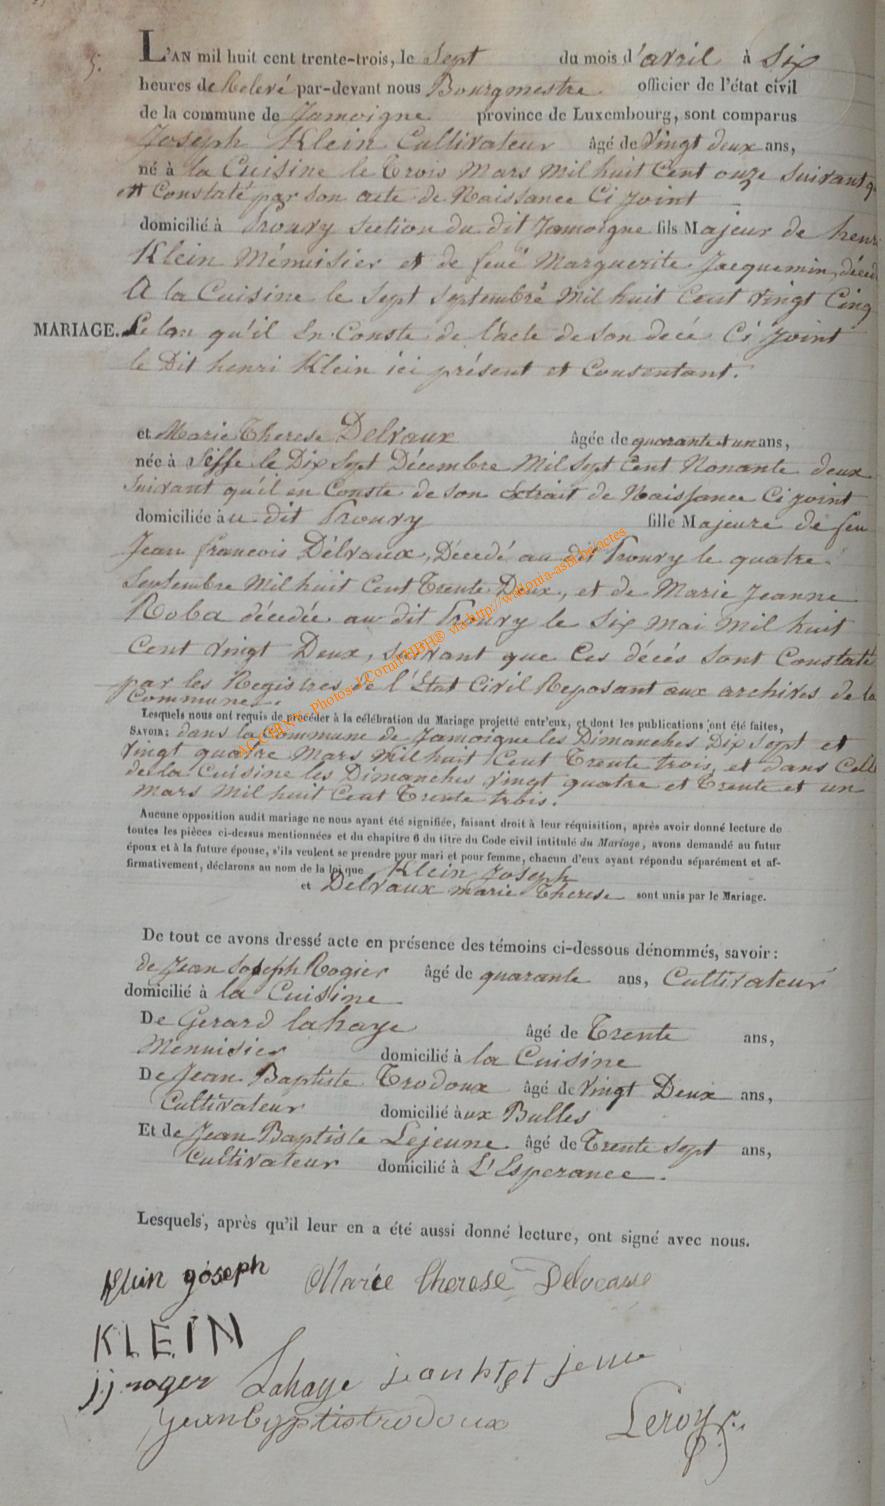 5.
L'AN mil huit cent trente-trois, le Sept du mois d'avril à Six
heures de Relevé par-devant nous Bourgmestre officier de l'état civil
de la commune de Jamoigne province de Luxembourg, sont comparus
Joseph Klein Cultivateur âgé de vingt deux ans,
né à la Cuisine le Trois Mars Mil huit Cent onze Suivant
est Constaté par son acte de Naissance Ci joint
domicilié à Prouvy section du dit Jamoigne fils Majeur de henri
Klein Ménuisier et de feue Marguerite Jacquemin, décéd
A la Cuisine le Sept Septembre Mil huit Cent vingt Cinq
MARIAGE. Selon qu'il en Conste de l'acte de Son décé Ci joint
le Dit henri Klein ici présent et Consentant.
et Marie Therese Delvaux âgée de quarante et un ans,
née à Siffe le Dix Sept Décembre Mil Sept Cent Nonante deux
Suivant qu'il en Conste de son Extrait de Naissance Ci joint
domiciliée à u dit Prouvy fille Majeure de feu
Jean francois Délvaux, Décedé au dit Prouvy le quatre
Septembre Mil huit Cent Trente Deux, et de Marie Jeanne
Roba décedée au dit Prouvy le Six Mai Mil huit
Cent vingt Deux, Suivant que Ces décés Sont Constaté
par les Registres de l'Etat Civil Reposant aux archives de la
Commune.
Lesquels nous ont requis de procéder à la célébration du Mariage projetté entr'eux, et dont les publications ont été faites,
SAVOIR: dans la Commune de Jamoigne les Dimanches Dix Sept et
vingt quatre Mars Mil huit Cent Trente trois, et dans Celle
de la Cuisine les Dimanches vingt quatre et Trente et un
Mars Mil huit Cent Trente trois.
Aucune opposition audit mariage ne nous ayant été signifiée, faisant droit à leur réquisition, après avoir donné lecture de
toutes les pièces ci-dessus mentionnées et du chapitre 6 du titre du Code civil intitulé du Mariage, avons demandé au futur
époux et à la future épouse, s'ils veulent se prendre pour mari et pour femme, chacun d'eux ayant répondu séparément et af-
firmativement, déclarons au nom de la loi que Klein Joseph
et Delvaux marie Therese sont unis par le Mariage.
De tout ce avons dressé acte en présence des témoins ci-dessous dénommés, savoir:
de Jean Joseph Rogier âgé de quarante ans, Cultivateur
domicilié à la Cuisine
De Gerard lahaye âgé de Trente ans,
Menuisier domicilié à la Cuisine
De Jean Baptiste Trodoux âgé de vingt Deux ans,
Cultivateur domicilié à ux Bulles
Et de Jean Baptiste Lejeune âgé de Trente Sept ans,
Cultivateur domicilié à L'Esperance.
Lesquels, après qu'il leur en a été aussi donné lecture, ont signé avec nous.
Klein joseph Marie therese Delveaux
KLEIN
jj roger Lahaye
Jean bap tist trodoux Leroy